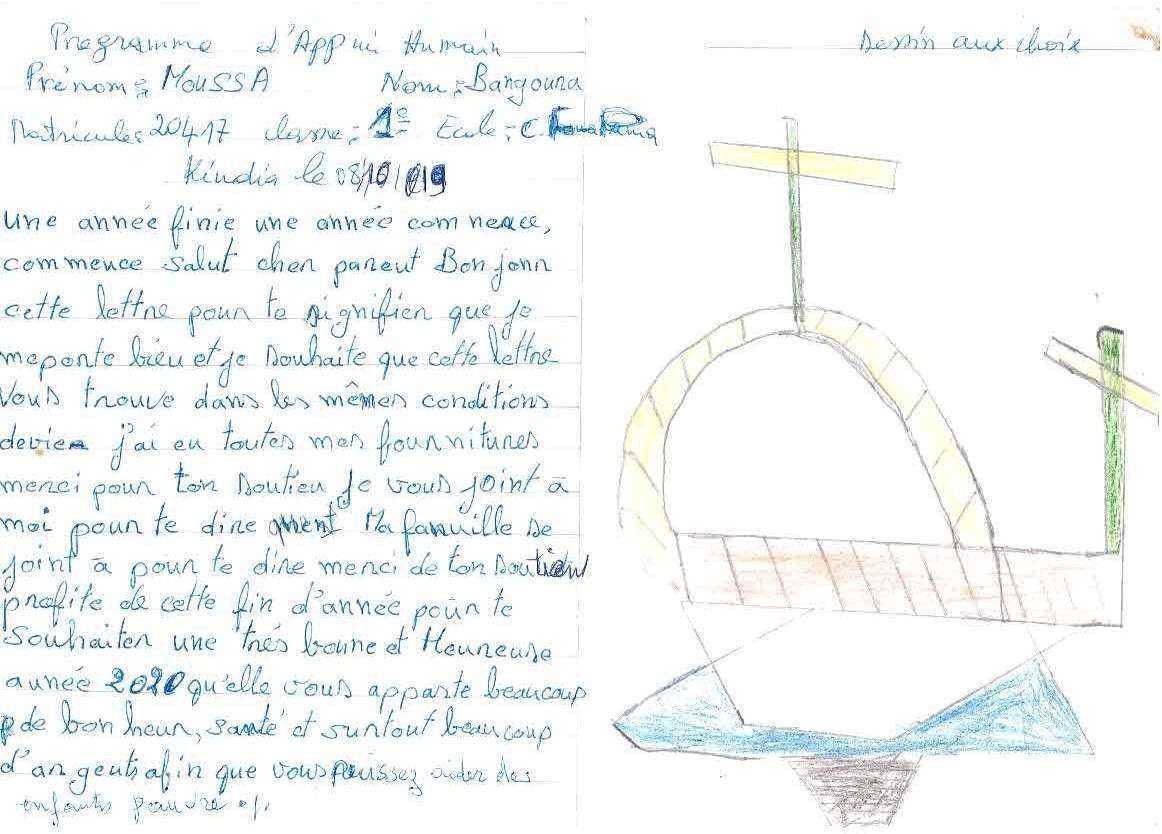 Programme d'Appui Humain
Prénom: MOUSSA Nom: Bangoura
Matricule: 20417 classe: 1e Ecole: C
Kindia le 08/10/19
une année finie une année commence,
commence salut cher parent Bonjour
cette lettre pour te signifier que je
meporte bien et je souhaite que cette lettre
Vous trouve dans les mêmes conditions
devie j'ai eu toutes mes fournitures
merci pour ton soutien Je vous joint à
moi pour te dire Ma famille se
joint à pour te dire merci de ton soutien
profite de cette fin d'année pour te
Souhaiter une très bonne et Heureuse
année 2020 qu'elle vous apporte beaucoup
de bonheur, santé et surtout beaucoup
d'argents afin que vous puissez aider des
enfants pauvre
Dessin aux choix